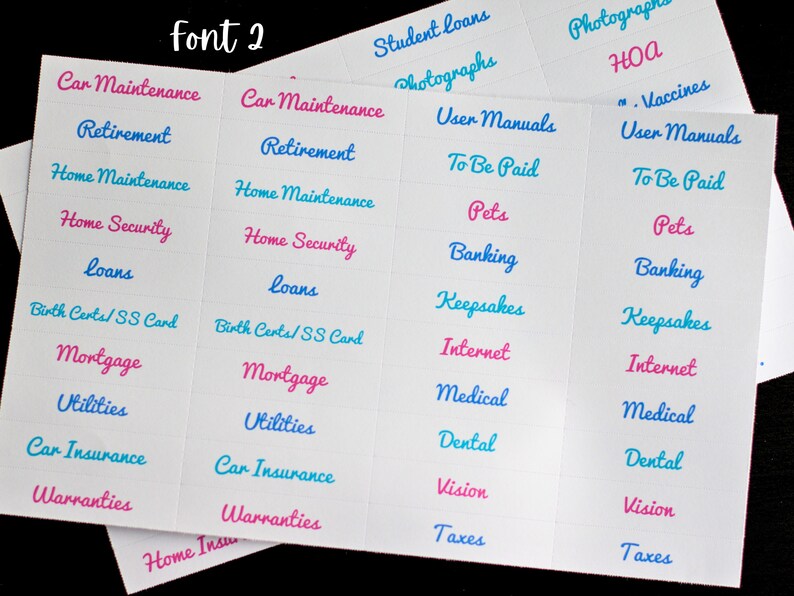 Font 2
Student Loans
Photographs
Photographs
HOA
Vaccines
Car Maintenance
Car Maintenance
User Manuals
User Manuals
Retirement
Retirement
To Be Paid
To Be Paid
Home Maintenance
Home Maintenance
Pets
Pets
Home Security
Home Security
Banking
Banking
Loans
Loans
Keepsakes
Keepsakes
Birth Certs/SS Card
Birth Certs/SS Card
Internet
Internet
Mortgage
Mortgage
Medical
Medical
Utilities
Utilities
Dental
Dental
Car Insurance
Car Insurance
Vision
Vision
Warranties
Warranties
Taxes
Taxes
Home